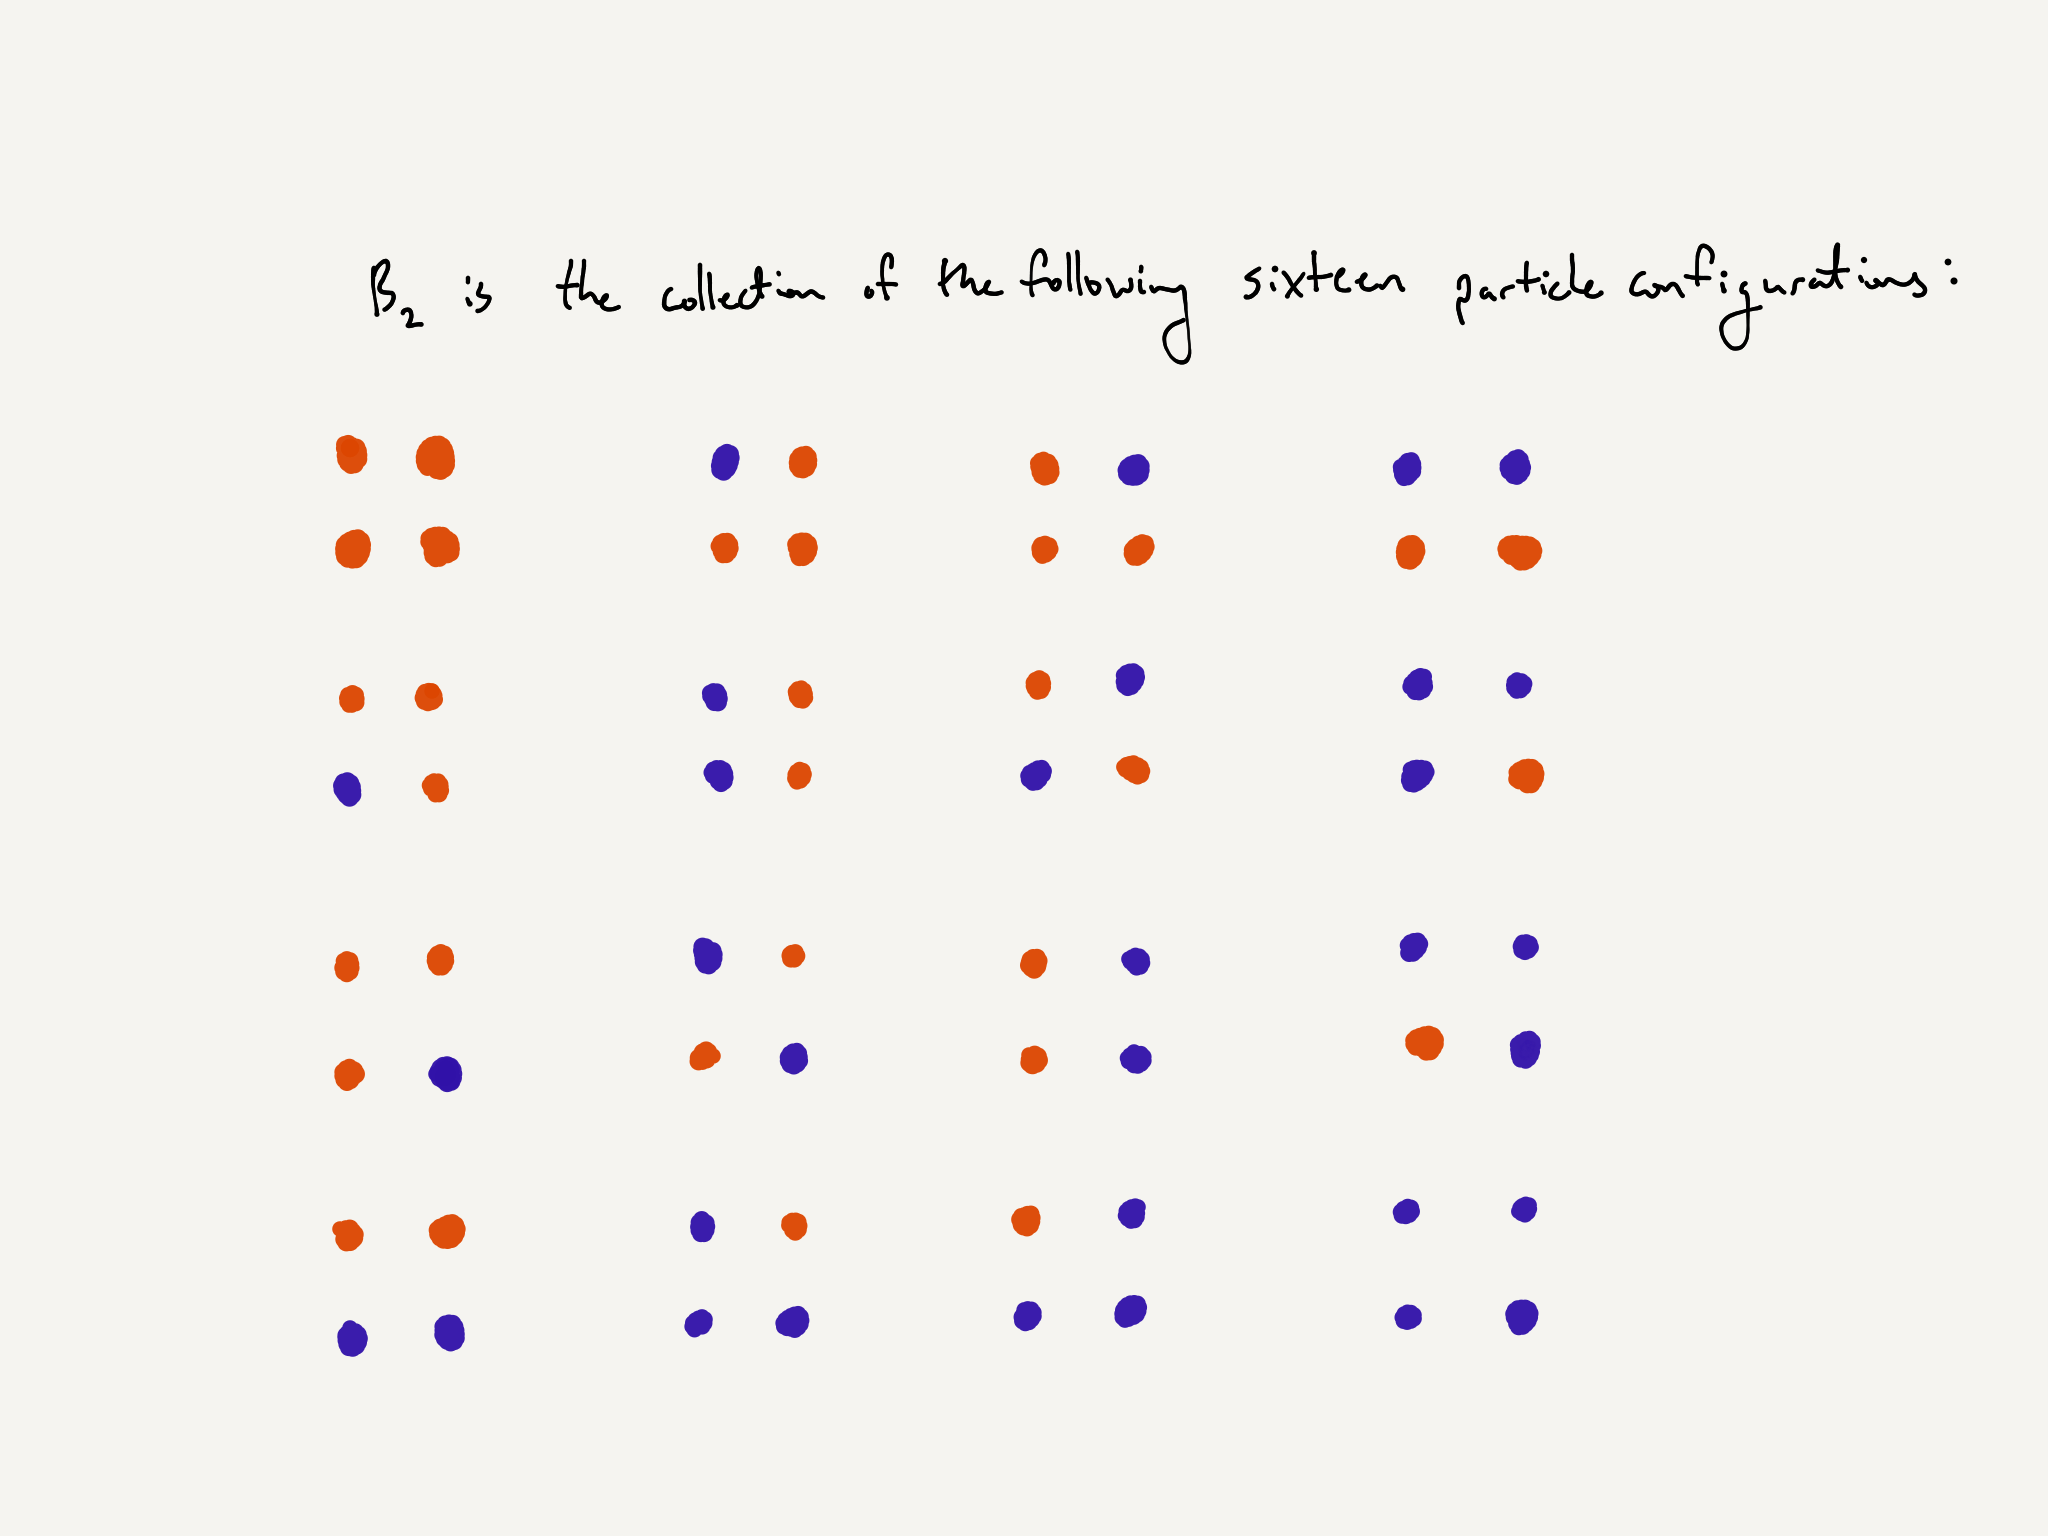 B₂ is the collection of the following sixteen particle configurations: